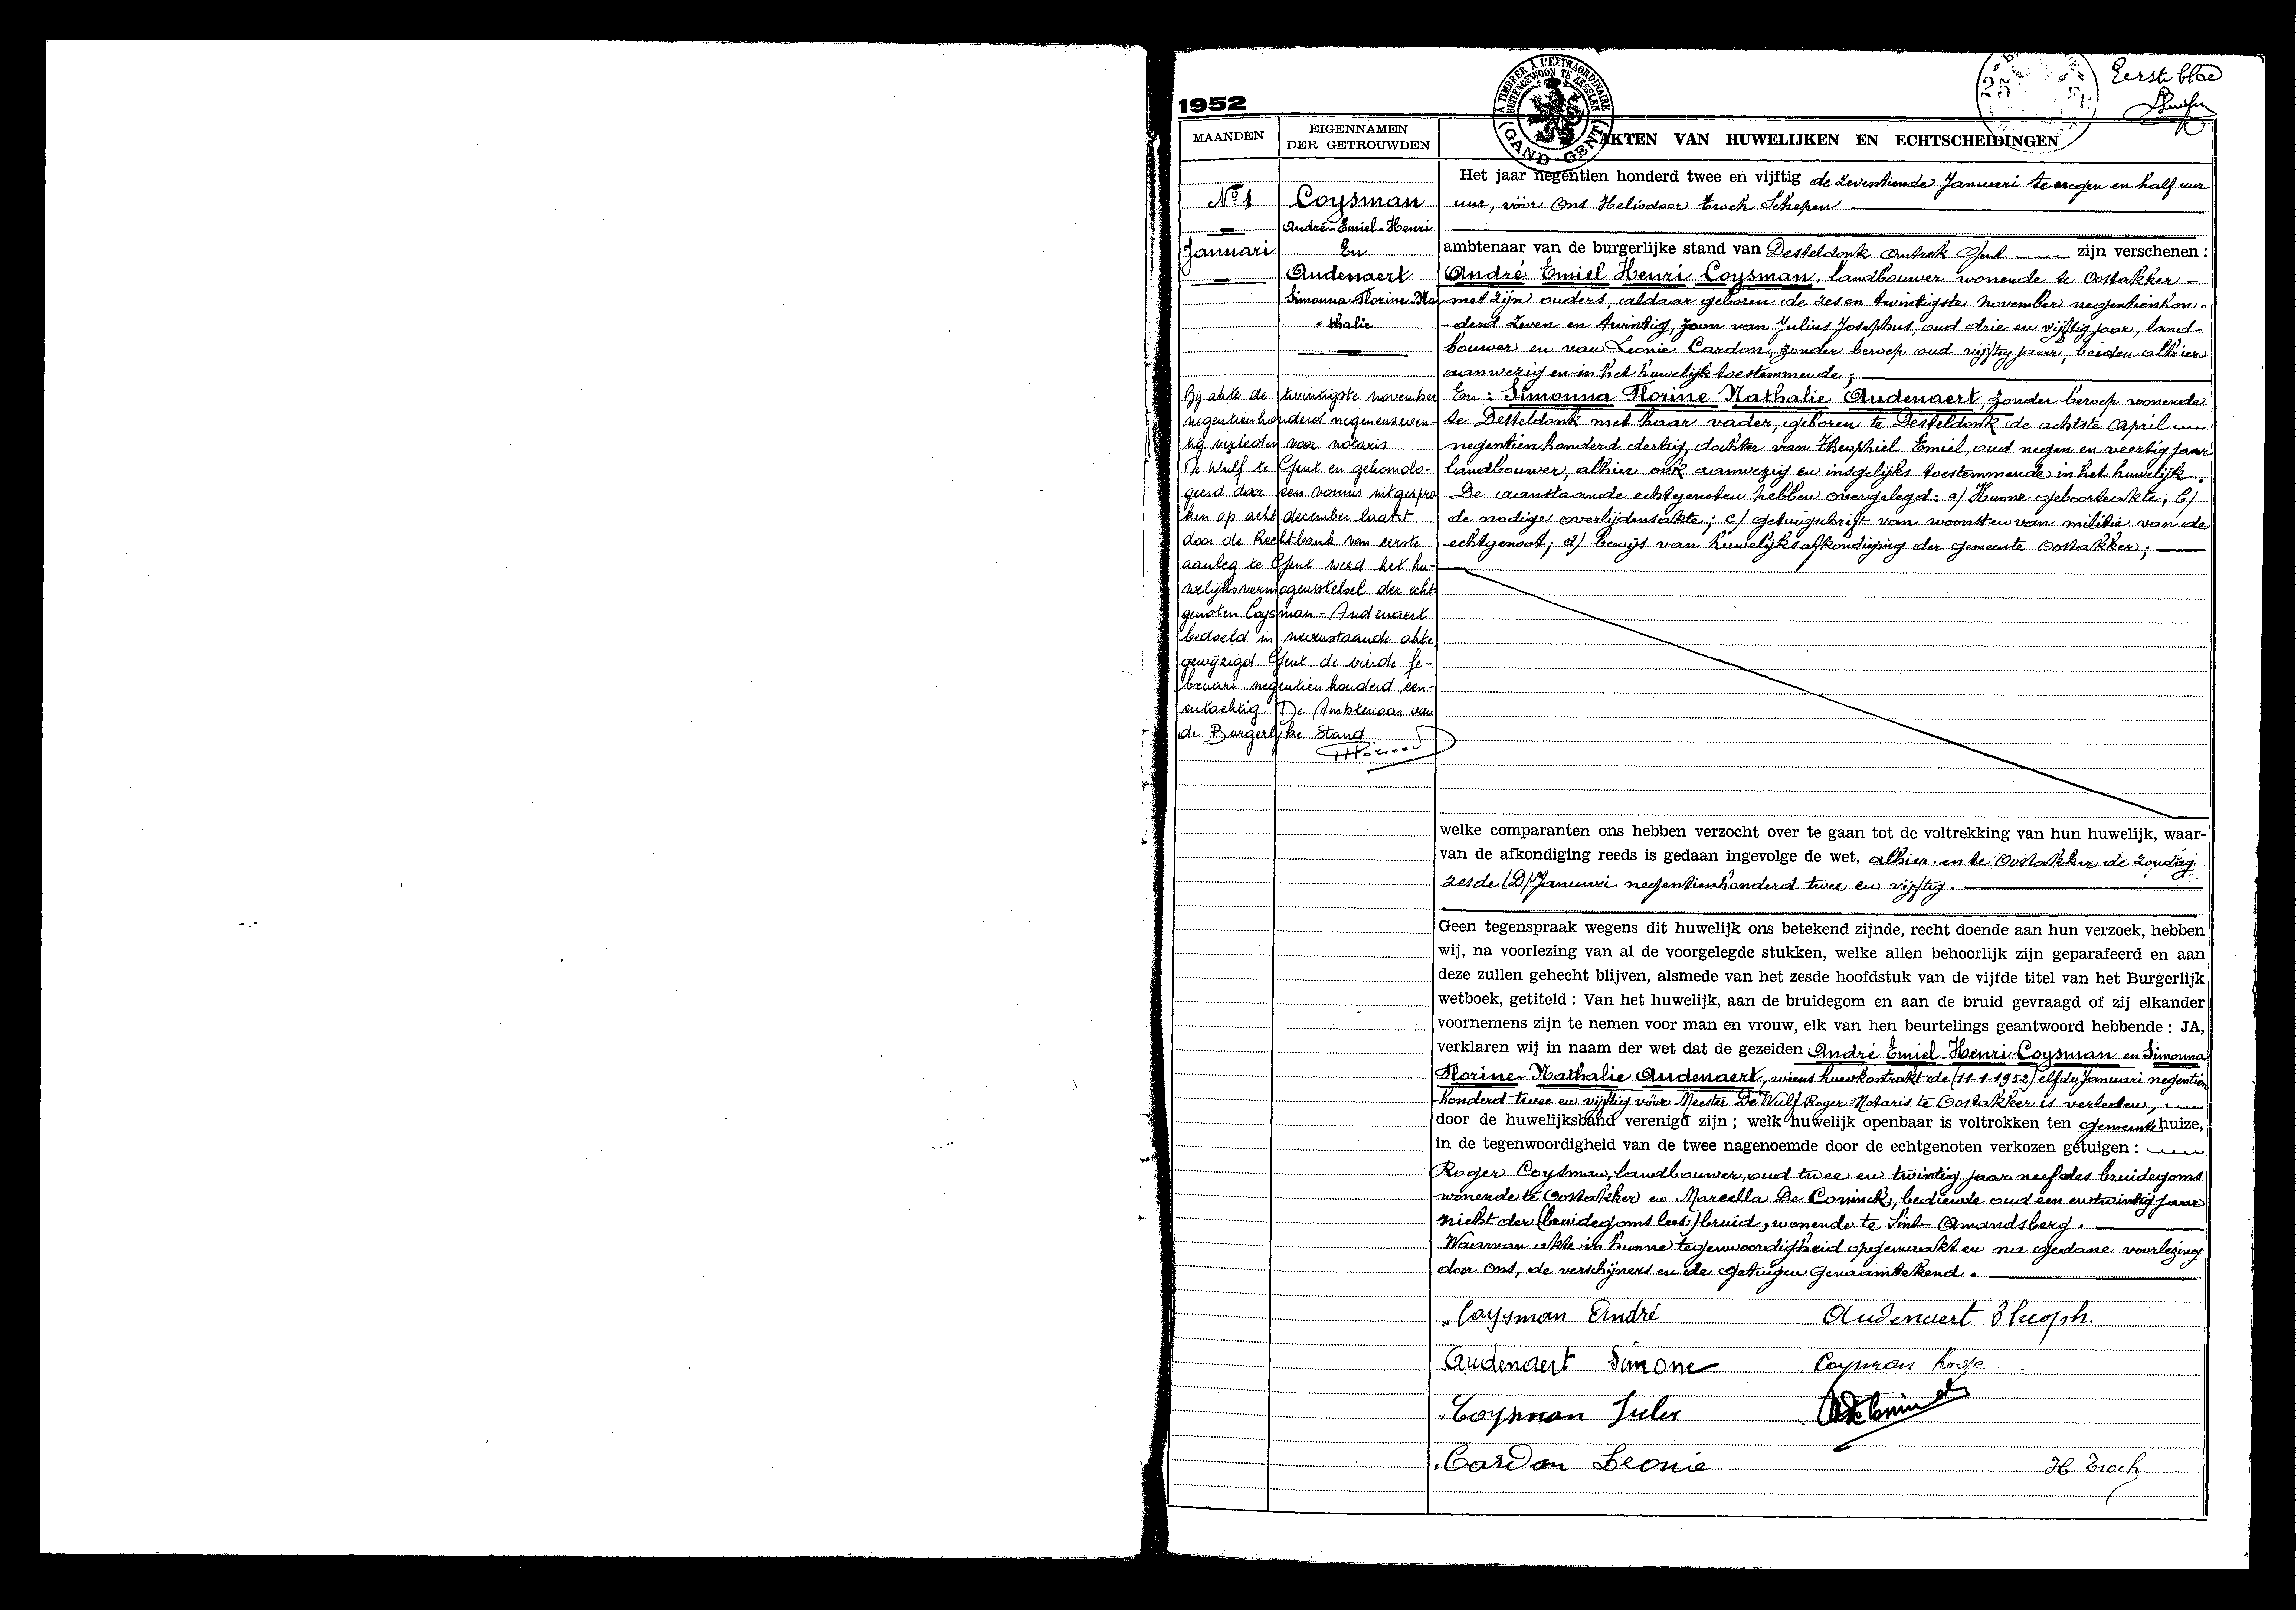 Eerste blad
1952
A TIMBRER À L'EXTRAORDINAIRE
BUITENGEWOON TE ZEGELEN
GAND GENT
25
MAANDEN
EIGENNAMEN
DER GETROUWDEN
AKTEN VAN HUWELIJKEN EN ECHTSCHEIDINGEN
No 1
Januari
Coysman
André-Emiel-Henri
En
Audenaert
Simonna Florine Na
-thalie
Bij akte de twintigste november
negentienhonderd negenenzeven-
tig verleden voor notaris
De Wulf te Gent en gehomolo-
geerd door een vonnis uitgespro
ken op acht december laatst
door de Rechtbank van eerste
aanleg te Gent werd het hu-
welijksvermogensstelsel der echt-
genoten Coysman - Audenaert
bedoeld in nevenstaande akte
gewijzigd. Gent de vierde fe-
bruari negentienhonderd een-
entachtig. De Ambtenaar van
de Burgerlijke Stand
Het jaar negentien honderd twee en vijftig de zeventiende Januari te negen en half uur
uur, vóór Ons Heliodoor Troch Schepen
ambtenaar van de burgerlijke stand van Desteldonk Gent zijn verschenen :
André Emiel Henri Coysman, landbouwer wonende te Oostakker -
met zijn ouders, aldaar geboren de zes en twintigste November negentienhon-
-derd zeven en twintig, zoon van Julius Josephus, oud drie en vijftig jaar, land-
bouwer en van Leonie Cardon, zonder beroep oud vijftig jaar, beiden alhier
aanwezig en in het huwelijk toestemmende ;
En : Simonna Florine Nathalie Audenaert, zonder beroep wonende
te Desteldonk met haar vader, geboren te Desteldonk de achtste April
negentienhonderd dertig, dochter van Theophiel Emiel, oud negen en veertig jaar
landbouwer, alhier ook aanwezig en insgelijks toestemmende in het huwelijk.
De aanstaande echtgenoten hebben overgelegd : a) Hunne geboorteakte ; b)
de nodige overlijdensakte ; c) getuigschrift van woonst en van militie van de
echtgenoot ; d) bewijs van huwelijksafkondiging der gemeente Oostakker ;
welke comparanten ons hebben verzocht over te gaan tot de voltrekking van hun huwelijk, waar-
van de afkondiging reeds is gedaan ingevolge de wet, alhier en te Oostakker de zondag
zesde (D) Januari negentienhonderd twee en vijftig.
Geen tegenspraak wegens dit huwelijk ons betekend zijnde, recht doende aan hun verzoek, hebben
wij, na voorlezing van al de voorgelegde stukken, welke allen behoorlijk zijn geparafeerd en aan
deze zullen gehecht blijven, alsmede van het zesde hoofdstuk van de vijfde titel van het Burgerlijk
wetboek, getiteld : Van het huwelijk, aan de bruidegom en aan de bruid gevraagd of zij elkander
voornemens zijn te nemen voor man en vrouw, elk van hen beurtelings geantwoord hebbende : JA,
verklaren wij in naam der wet dat de gezeiden André Emiel Henri Coysman en Simonna
Florine Nathalie Audenaert, wiens huwkontrakt de (11-1-1952) elfde Januari negentien
honderd twee en vijftig vóór Meester De Wulf Roger Notaris te Oostakker is verleden,
door de huwelijksband verenigd zijn ; welk huwelijk openbaar is voltrokken ten gemeentehuize,
in de tegenwoordigheid van de twee nagenoemde door de echtgenoten verkozen getuigen :
Roger Coysman, landbouwer, oud twee en twintig jaar neef des bruidegoms
wonende te Oostakker en Marcella De Coninck, bediende oud een en twintig jaar
nicht der (bruidegoms lees:) bruid, wonende te Sint-Amandsberg.
Waarvan akte in hunne tegenwoordigheid opgemaakt en na gedane voorlezing
door Ons, de verschijners en de getuigen genaamtekend.
Coysman André Audenaert Theoph.
Audenaert Simone Coysman Roger
Coysman Jules
Cardon Leonie H. Troch